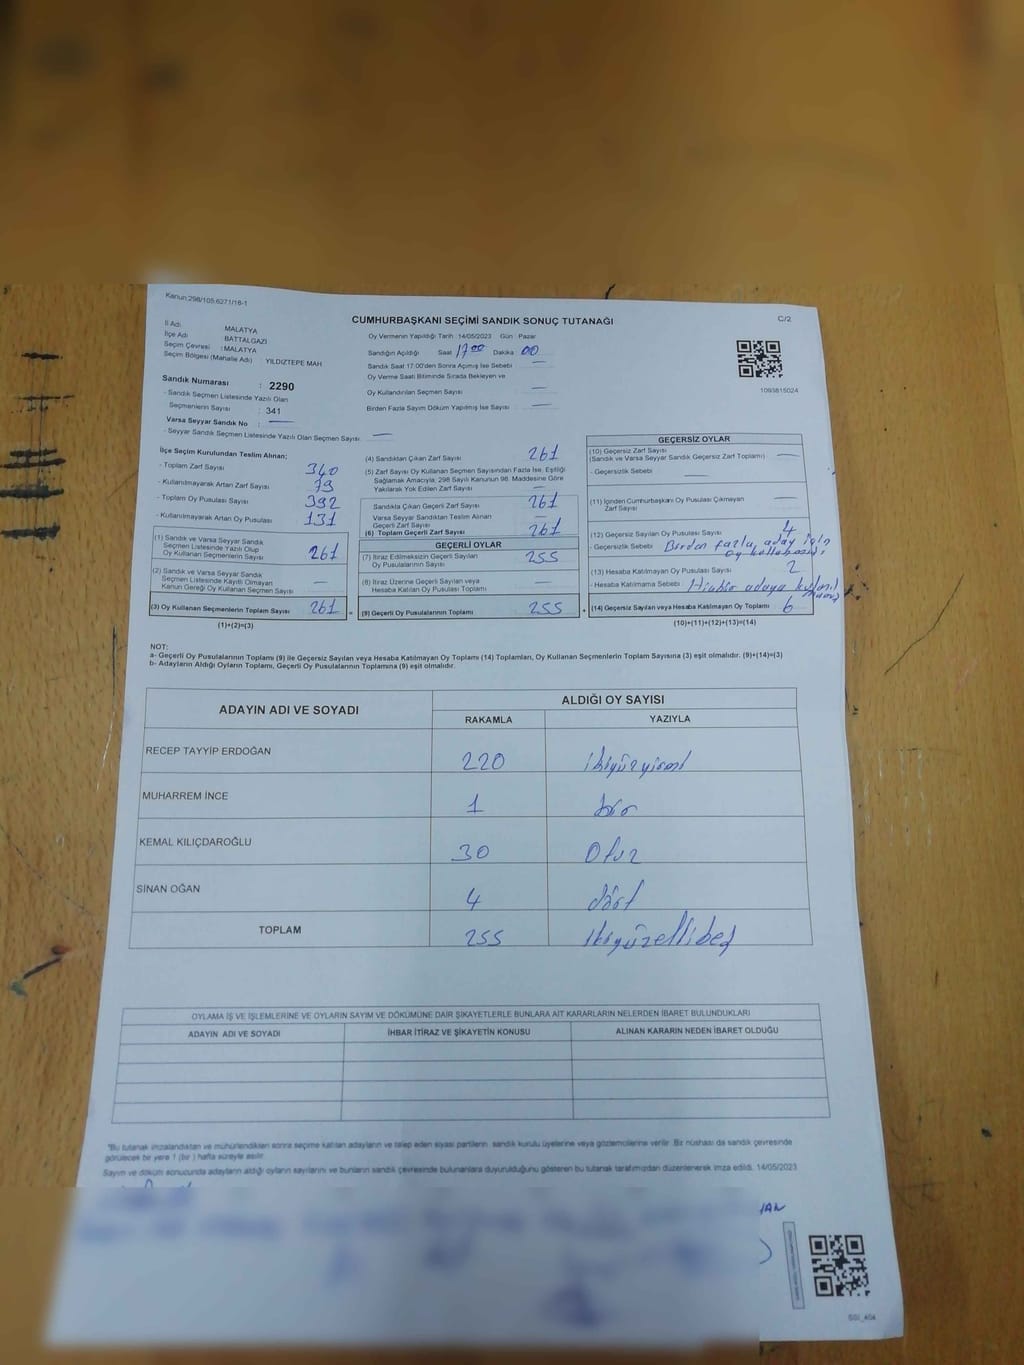 Kanun;298/105,6271/18-1
CUMHURBAŞKANI SEÇİMİ SANDIK SONUÇ TUTANAĞI
C/2
İl Adı MALATYA
İlçe Adı BATTALGAZİ
Seçim Çevresi : MALATYA
Seçim Bölgesi (Mahalle Adı) YILDIZTEPE MAH
Sandık Numarası : 2290
- Sandık Seçmen Listesinde Yazılı Olan
Seçmenlerin Sayısı : 341
Varsa Seyyar Sandık No : —
- Seyyar Sandık Seçmen Listesinde Yazılı Olan Seçmen Sayısı: —
Oy Vermenin Yapıldığı Tarih : 14/05/2023 Gün : Pazar
Sandığın Açıldığı Saat 17 00 Dakika 00
Sandık Saat 17.00'den Sonra Açılmış İse Sebebi —
Oy Verme Saati Bitiminde Sırada Bekleyen ve
Oy Kullandırılan Seçmen Sayısı —
Birden Fazla Sayım Döküm Yapılmış İse Sayısı —
1093815024
İlçe Seçim Kurulundan Teslim Alınan;
- Toplam Zarf Sayısı 340
- Kullanılmayarak Artan Zarf Sayısı 79
- Toplam Oy Pusulası Sayısı 392
- Kullanılmayarak Artan Oy Pusulası 131
(1) Sandık ve Varsa Seyyar Sandık
Seçmen Listesinde Yazılı Olup
Oy Kullanan Seçmenlerin Sayısı 261
(2) Sandık ve Varsa Seyyar Sandık
Seçmen Listesinde Kayıtlı Olmayan
Kanun Gereği Oy Kullanan Seçmen Sayısı —
(3) Oy Kullanan Seçmenlerin Toplam Sayısı 261 =
(1)+(2)=(3)
(4) Sandıktan Çıkan Zarf Sayısı 261
(5) Zarf Sayısı Oy Kullanan Seçmen Sayısından Fazla İse, Eşitliği
Sağlamak Amacıyla; 298 Sayılı Kanunun 98. Maddesine Göre
Yakılarak Yok Edilen Zarf Sayısı —
Sandıkta Çıkan Geçerli Zarf Sayısı 261
Varsa Seyyar Sandıktan Teslim Alınan
Geçerli Zarf Sayısı —
(6) Toplam Geçerli Zarf Sayısı 261
GEÇERLİ OYLAR
(7) İtiraz Edilmeksizin Geçerli Sayılan
Oy Pusulasının Sayısı 255
(8) İtiraz Üzerine Geçerli Sayılan veya
Hesaba Katılan Oy Pusulası Toplamı —
(9) Geçerli Oy Pusulalarının Toplamı 255 +
GEÇERSİZ OYLAR
(10) Geçersiz Zarf Sayısı
(Sandık ve Varsa Seyyar Sandık Geçersiz Zarf Toplamı) —
- Geçersizlik Sebebi —
(11) İçinden Cumhurbaşkanı Oy Pusulası Çıkmayan
Zarf Sayısı —
(12) Geçersiz Sayılan Oy Pusulası Sayısı 4
- Geçersizlik Sebebi Birden fazla aday için
oy
(13) Hesaba Katılmayan Oy Pusulası Sayısı 2
- Hesaba Katılmama Sebebi : Hiçbir adaya
(14) Geçersiz Sayılan veya Hesaba Katılmayan Oy Toplamı 6
(10)+(11)+(12)+(13)=(14)
NOT:
a- Geçerli Oy Pusulalarının Toplamı (9) ile Geçersiz Sayılan veya Hesaba Katılmayan Oy Toplamı (14) Toplamları, Oy Kullanan Seçmenlerin Toplam Sayısına (3) eşit olmalıdır. (9)+(14)=(3)
b- Adayların Aldığı Oyların Toplamı, Geçerli Oy Pusulalarının Toplamına (9) eşit olmalıdır.
ADAYIN ADI VE SOYADI ALDIĞI OY SAYISI
RAKAMLA YAZIYLA
RECEP TAYYİP ERDOĞAN 220 ikiyüzyirmi
MUHARREM İNCE 1 bir
KEMAL KILIÇDAROĞLU 30 Otuz
SİNAN OĞAN 4 dört
TOPLAM 255 ikiyüzellibeş
OYLAMA İŞ VE İŞLEMLERİNE VE OYLARIN SAYIM VE DÖKÜMÜNE DAİR ŞİKAYETLERLE BUNLARA AİT KARARLARIN NELERDEN İBARET BULUNDUKLARI
ADAYIN ADI VE SOYADI İHBAR İTİRAZ VE ŞİKAYETİN KONUSU ALINAN KARARIN NEDEN İBARET OLDUĞU
*Bu tutanak imzalandıktan ve mühürlendikten sonra seçime katılan adayların ve talep eden siyasi partilerin sandık kurulu üyelerine veya gözlemcilerine verilir. Bir nüshası da sandık çevresinde
görülecek bir yere 1 (bir ) hafta süreyle asılır.
Sayım ve döküm sonucunda adayların aldığı oyların sayılarını ve bunların sandık çevresinde bulunanlara duyurulduğunu gösteren bu tutanak tarafımızdan düzenlenerek imza edildi. 14/05/2023
SSI_404